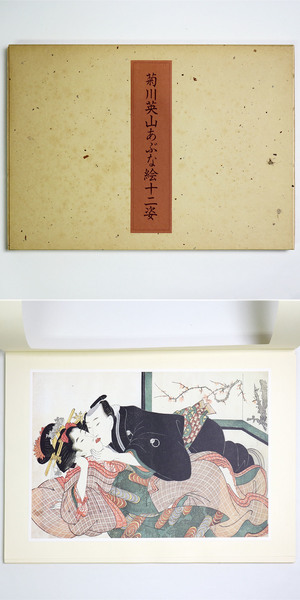 菊川英山あぶな絵十二姿